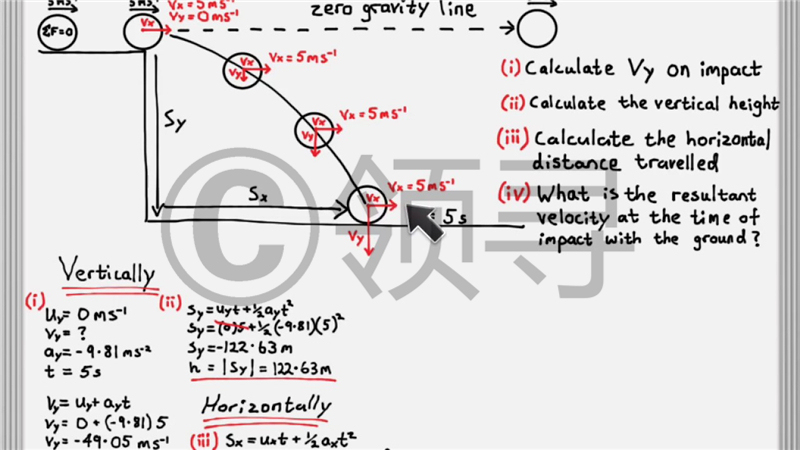 5ms⁻¹
5ms⁻¹
Vx=5ms⁻¹
Vy=0ms⁻¹
zero gravity line
ΣF=0
Vx
Vx
Vy
Vx=5ms⁻¹
(i) Calculate Vy on impact
(ii) Calculate the vertical height
(iii) Calculate the horizontal
distance travelled
(iv) What is the resultant
velocity at the time of
impact with the ground?
Sy
Vx
Vy
Vx=5ms⁻¹
Sx
Vx
Vy
Vx=5ms⁻¹
5s
©领寻
Vertically
(i)
uy=0ms⁻¹
vy=?
ay=-9.81ms⁻²
t=5s
vy=uy+ayt
vy=0+(-9.81)5
vy=-49.05ms⁻¹
(ii)
Sy=uyt+½ayt²
Sy=(0)5+½(-9.81)(5)²
Sy=-122.63m
h=|Sy|=122.63m
Horizontally
(iii) Sx=uxt+½axt²